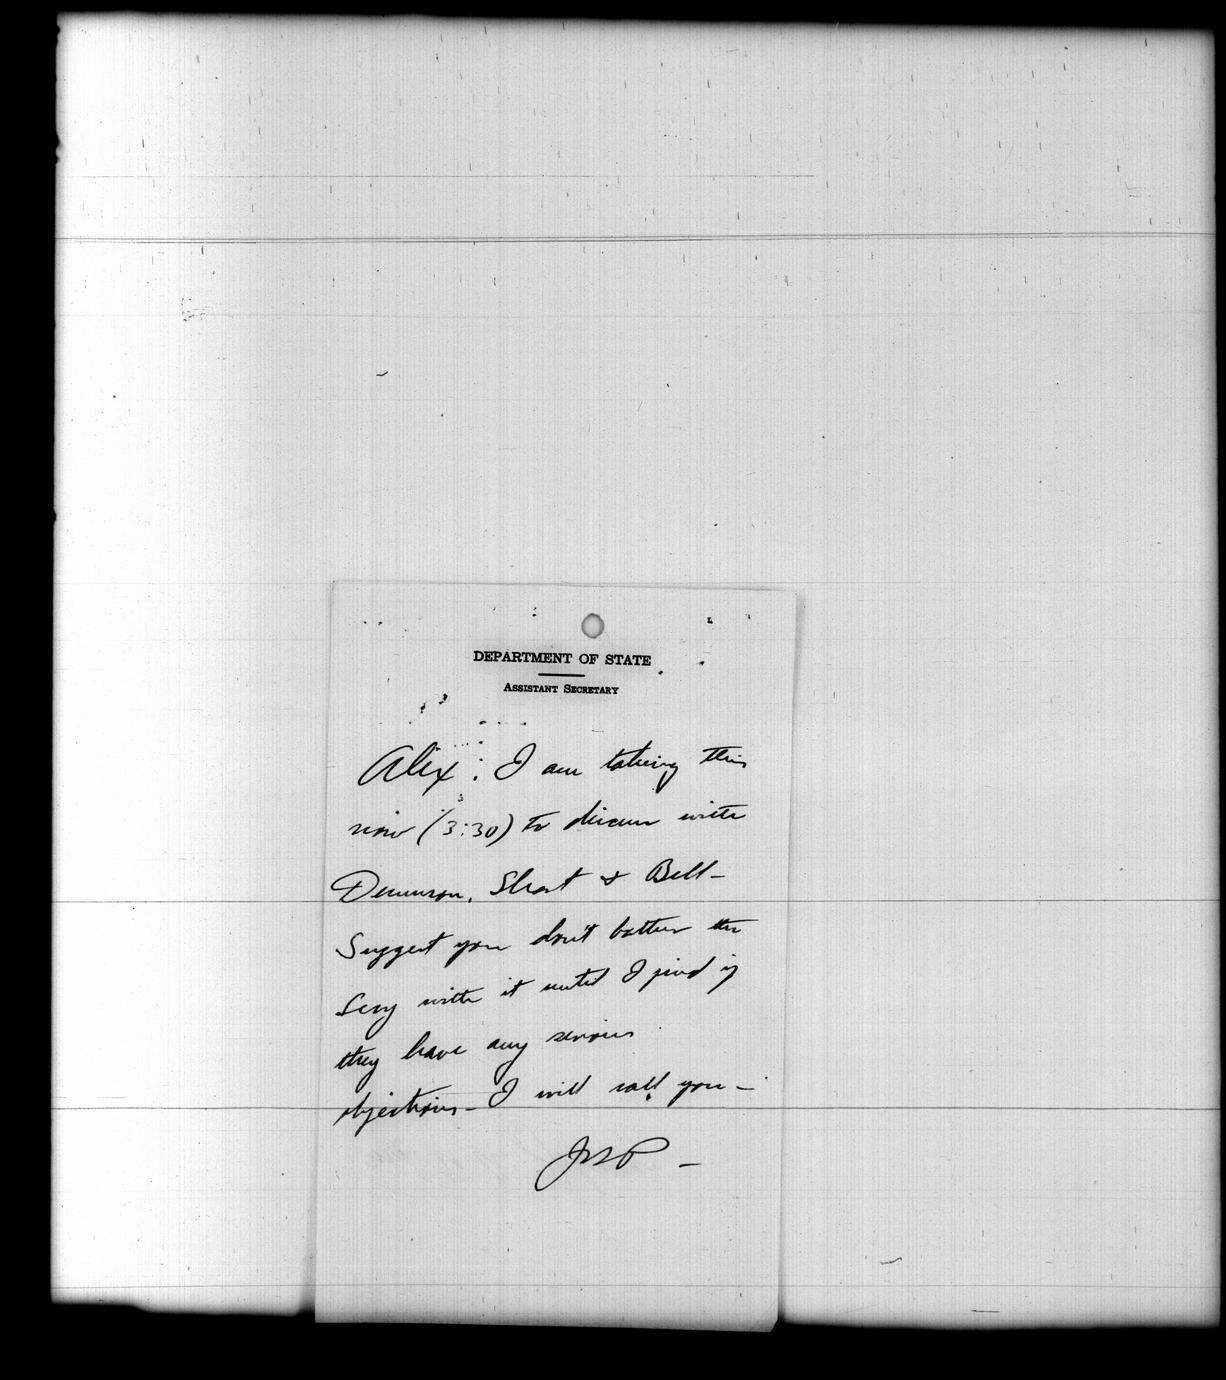 DEPARTMENT OF STATE
ASSISTANT SECRETARY
Alex: I am taking this
now (3:30) to discuss with
Dennison, Short & Bell –
Suggest you don't bother the
Secy with it until I find if
they have any serious
objections – I will call you –